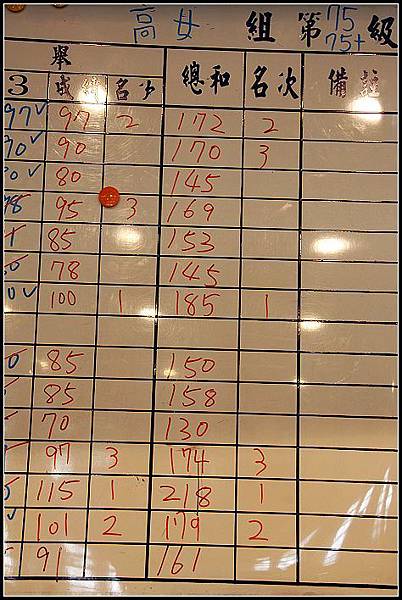 高女 組 第 75 級
75+
舉
3 成績 名次 總和 名次 備註
97✓ 97 2 172 2
90✓ 90 170 3
80✓ 80 145
95 3 169
85 153
78 145
0✓ 100 1 185 1
0 85 150
85 158
70 130
97 3 174 3
5 115 1 218 1
✓ 101 2 179 2
91 161